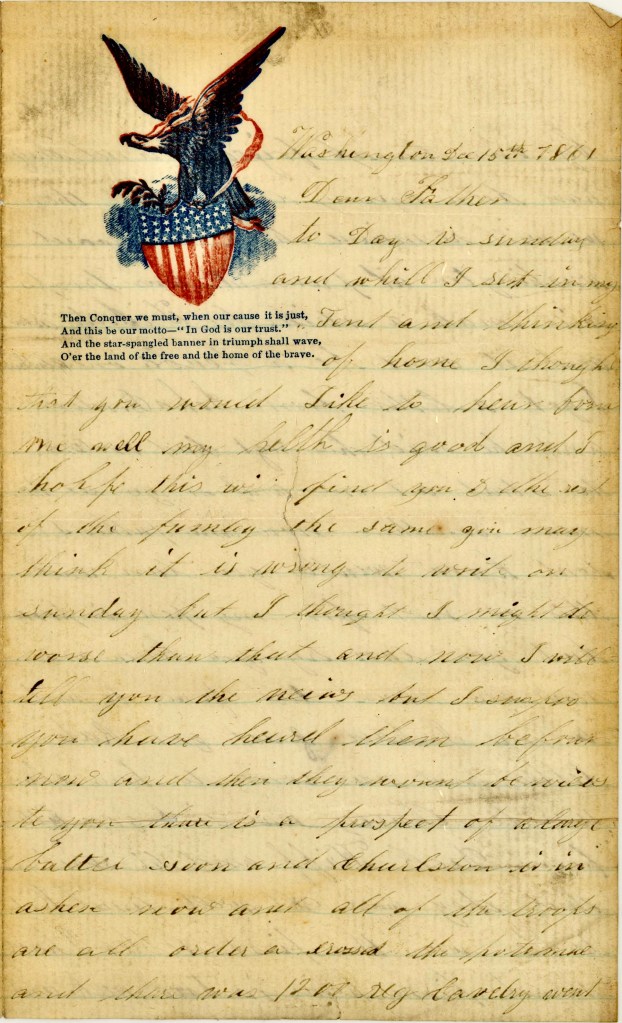 Washington Dec 15th 1861
Dear Father
to Day is sunday
and whill I set in my
Then Conquer we must, when our cause it is just,
And this be our motto—"In God is our trust."
And the star-spangled banner in triumph shall wave,
O'er the land of the free and the home of the brave.
Tent and thinking
of home I though
that you would like to hear from
me well my helth is good and I
hohpe this wi find you & the rest
of the famley the same you may
think it is wrong to write on
sunday but I thought I might do
worse than that and now I will
tell you the neiws but I supos
you have heard them befour
now and then they wount be neiws
to you thare is a prospect of a large
battel soon and Charlston is in
ashes now and all of the troops
are all order a crossd the potomac
and thare was 12 of reg Cavelry went